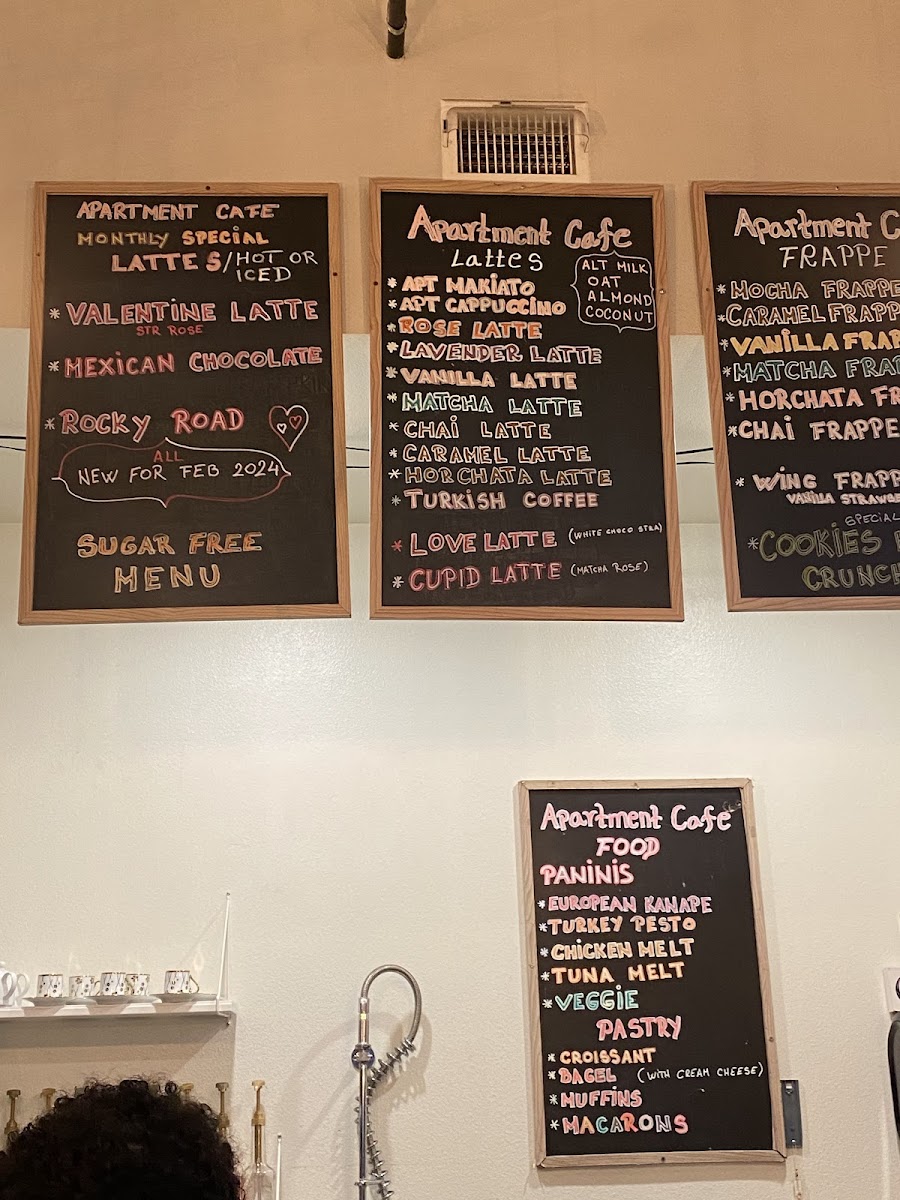 APARTMENT CAFE
MONTHLY SPECIAL
LATTES/HOT OR
ICED
* VALENTINE LATTE
STR ROSE
* MEXICAN CHOCOLATE
* ROCKY ROAD
ALL
NEW FOR FEB 2024
SUGAR FREE
MENU
Apartment Cafe
Lattes
ALT MILK
OAT
ALMOND
COCONUT
* APT MAKIATO
* APT CAPPUCCINO
* ROSE LATTE
* LAVENDER LATTE
* VANILLA LATTE
* MATCHA LATTE
* CHAI LATTE
* CARAMEL LATTE
* HORCHATA LATTE
* TURKISH COFFEE
* LOVE LATTE (WHITE CHOCO STRA)
* CUPID LATTE (MATCHA ROSE)
Apartment C
FRAPPE
* MOCHA FRAPPE
* CARAMEL FRAPP
* VANILLA FRAP
* MATCHA FRAP
* HORCHATA FR
* CHAI FRAPPE
* WING FRAPP
VANILLA STRAWBE
SPECIAL
* COOKIES
CRUNCH
Apartment Cafe
FOOD
PANINIS
* EUROPEAN KANAPE
* TURKEY PESTO
* CHICKEN MELT
* TUNA MELT
* VEGGIE
PASTRY
* CROISSANT
* BAGEL (WITH CREAM CHEESE)
* MUFFINS
* MACARONS